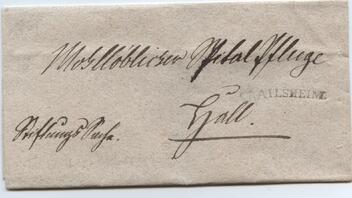 Wohlloblicher Spital Pflege
CRAILSHEIM
Hall.
Stiftungs Sache.